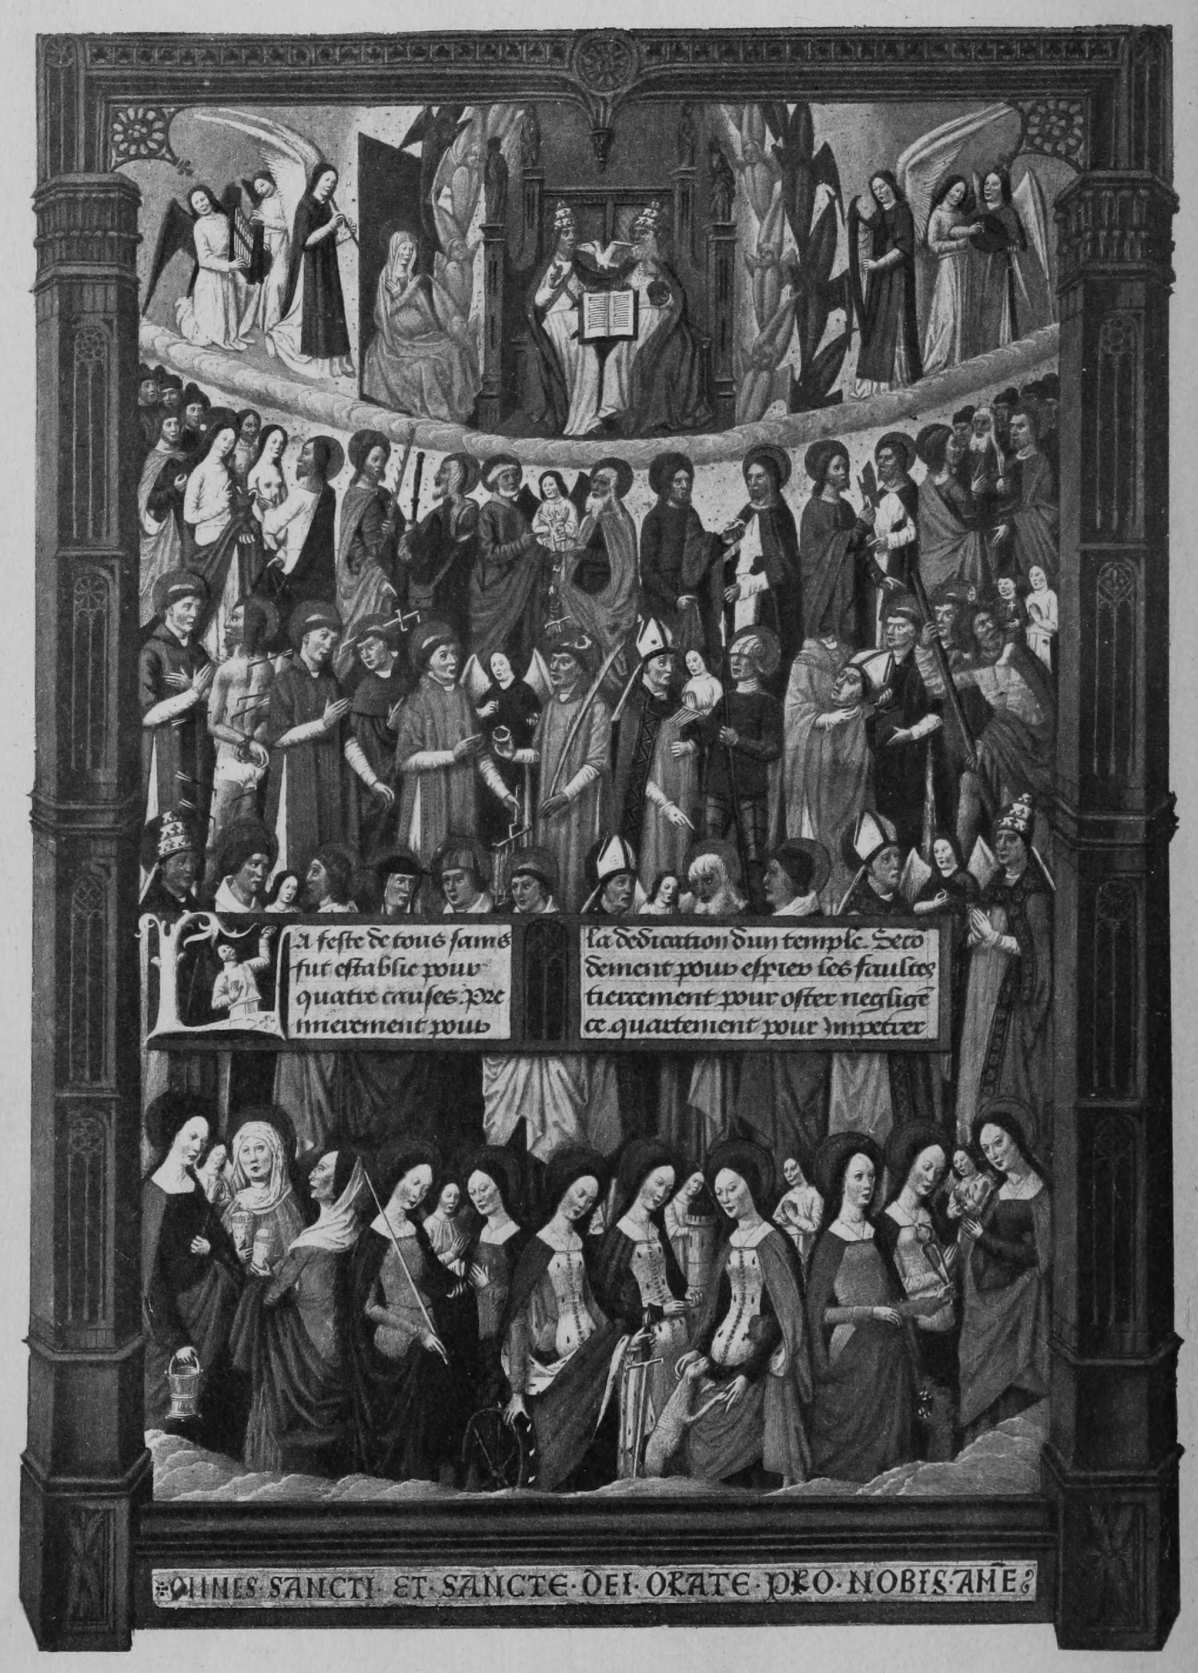 La feste de tous sains
fut establie pour
quatre causes. Pre
mierement pour
la dedication dun temple. Seco
dement pour espier les faultes
tiercement pour oster negligē
ce. quartement pour Impetrer
OMNES · SANCTI · ET · SANCTE · DEI · ORATE · PRO · NOBIS · AMĒ